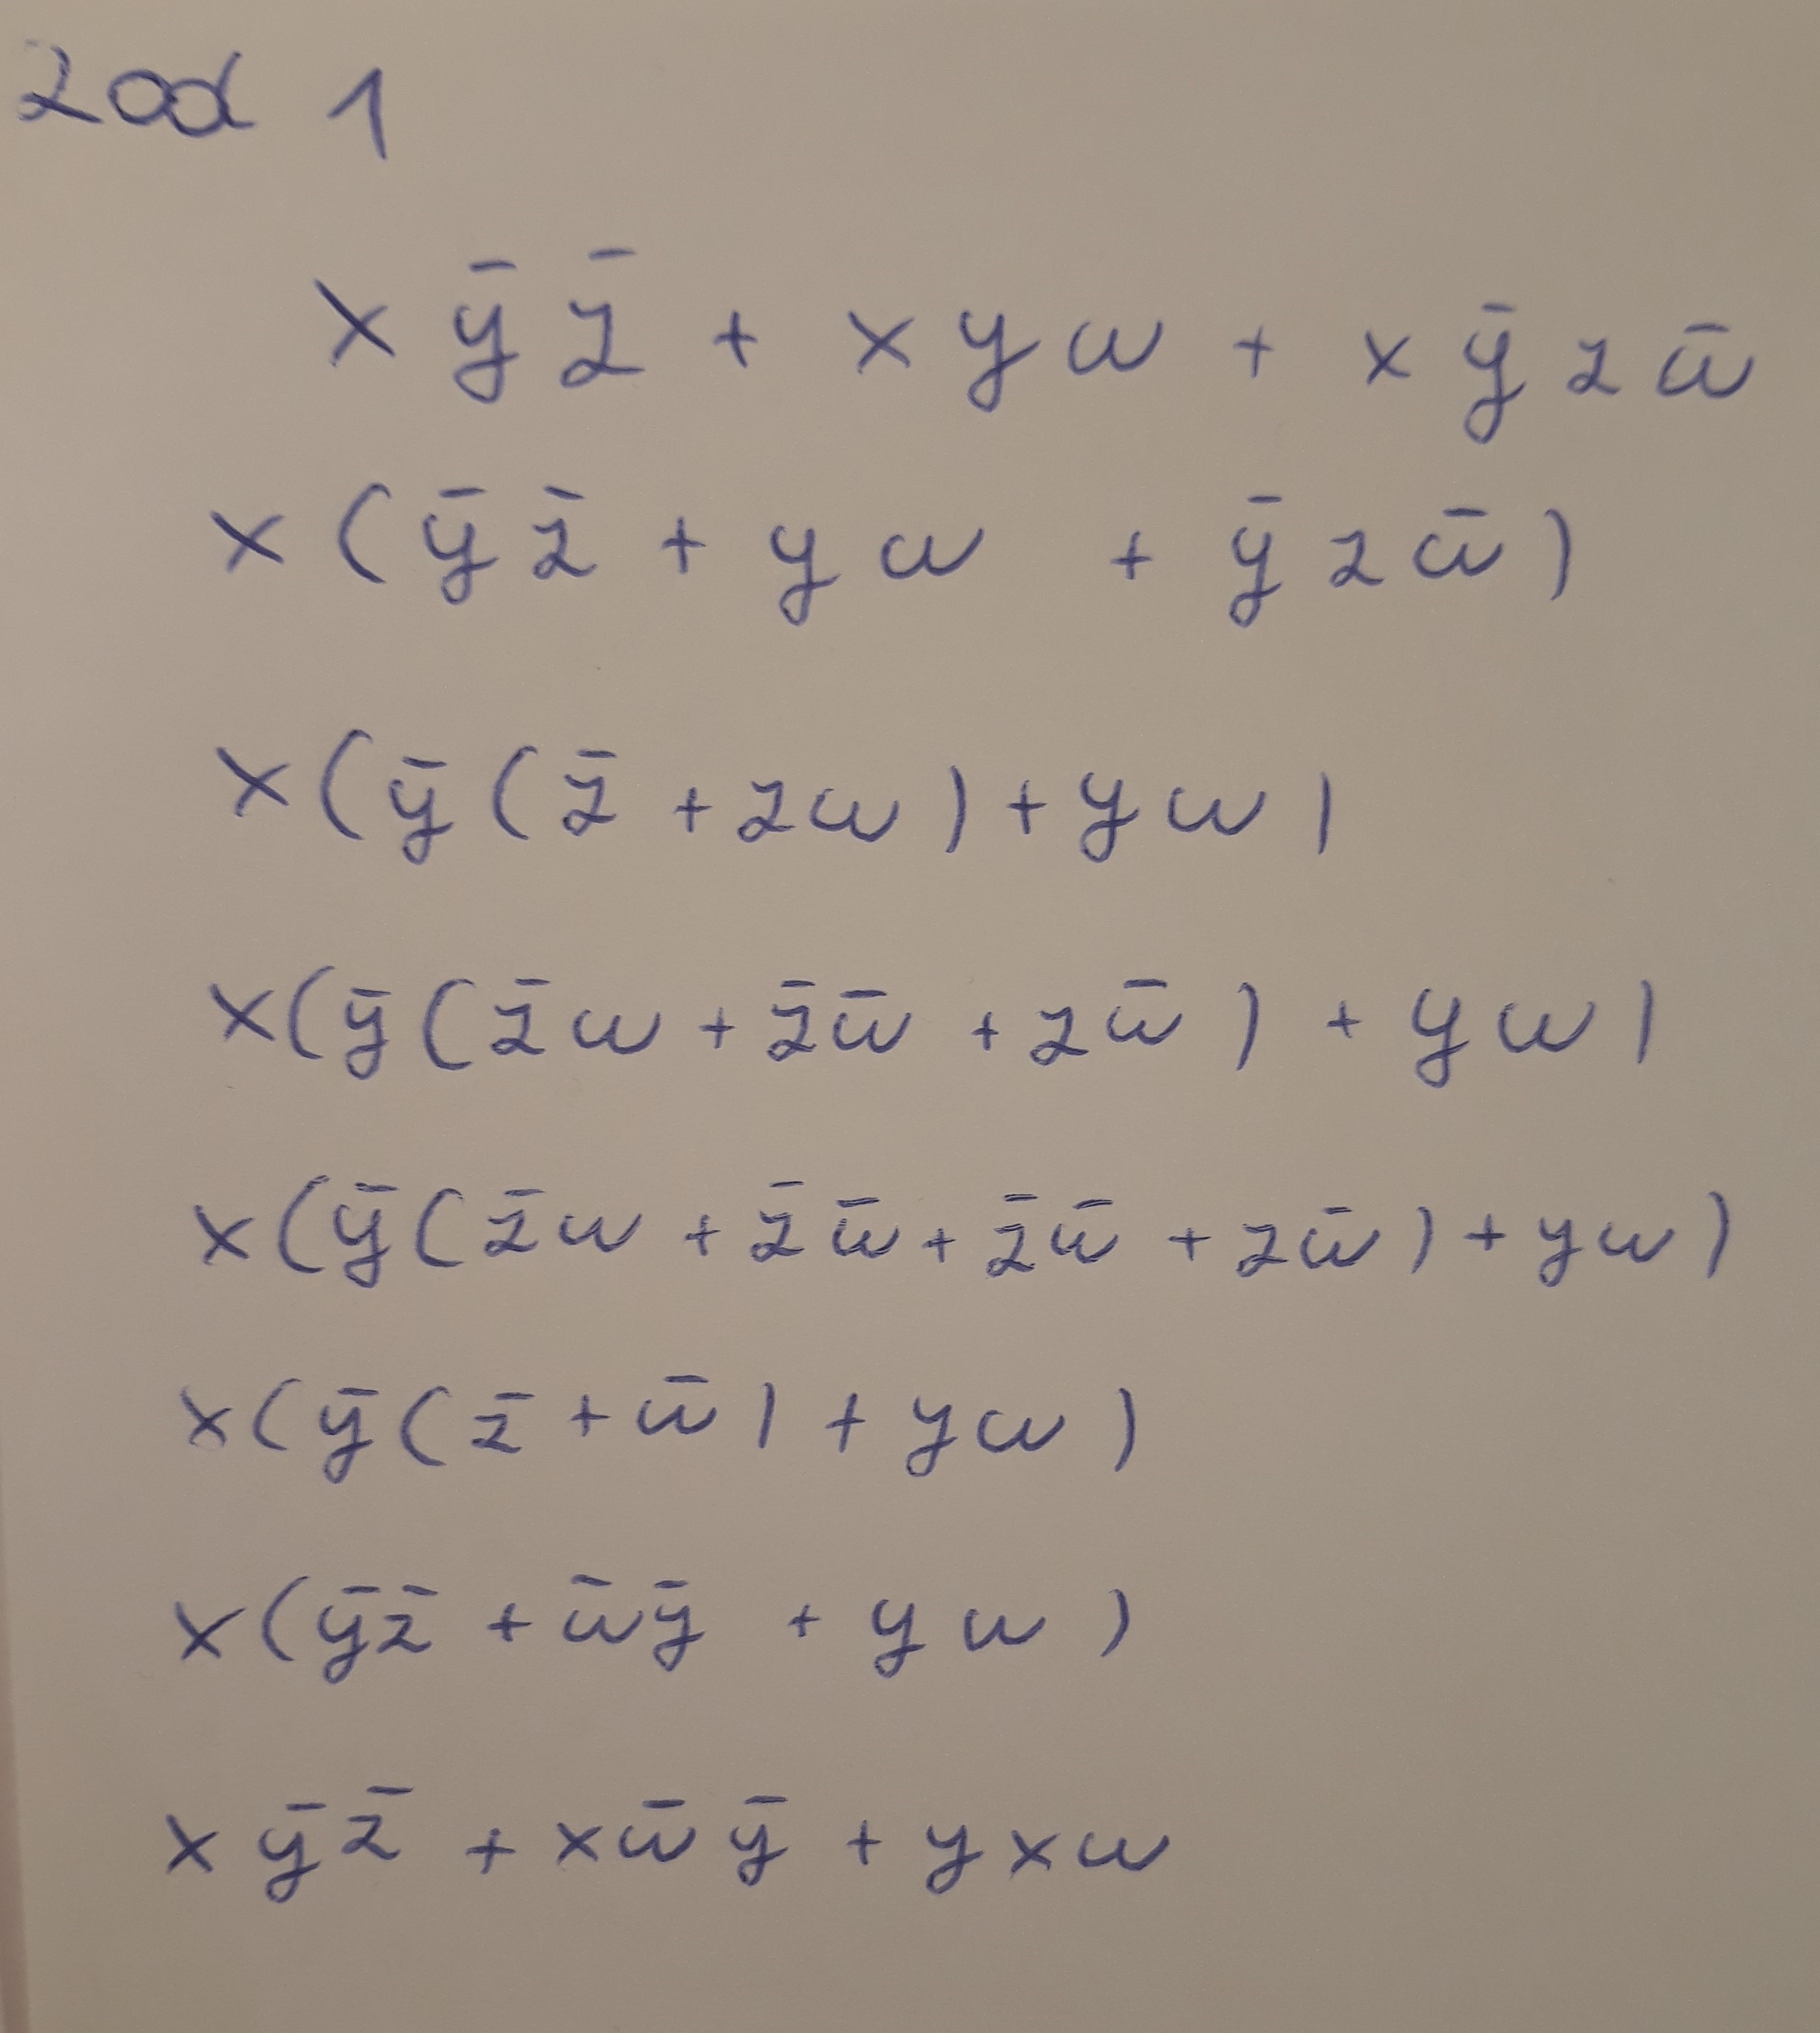 zad 1
x ȳ z̄ + x y w + x ȳ z w̄
x ( ȳ z̄ + y w + ȳ z w̄ )
x ( ȳ ( z̄ + z w ) + y w )
x ( ȳ ( z̄ w + z̄ w̄ + z w̄ ) + y w )
x ( ȳ ( z̄ w + z̄ w̄ + z̄ w̄ + z w̄ ) + y w )
x ( ȳ ( z̄ + w̄ ) + y w )
x ( ȳ z̄ + w̄ ȳ + y w )
x ȳ z̄ + x w̄ ȳ + y x w